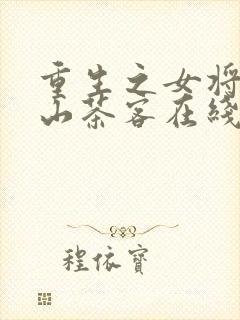 重生之女将
山茶客在綫
程依寶